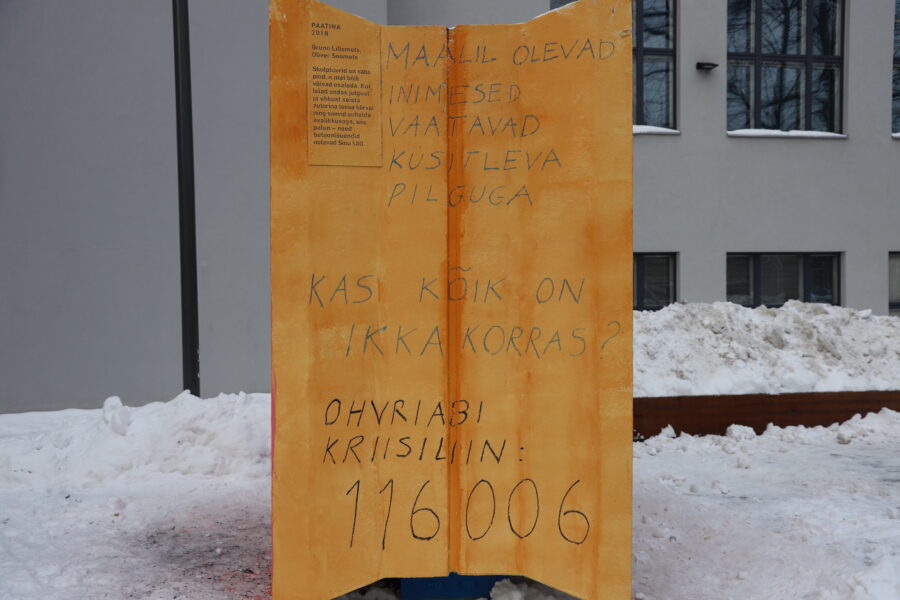 PAATINA
2018
Bruno Lillemets,
Oliver Soomets
Skulptuurid on vaba
pind, e mil kõik
võivad osaleda. Kui
leiad endas julgust
ja vihkust seista
autorina teose kõrval
ning soovid suhelda
avalikkusega, siis
palun – need
betoonlõuendid
ootavad Sinu kätt.
MAALIL OLEVAD
INIMESED
VAATAVAD
KÜSITLEVA
PILGUGA
KAS KÕIK ON
IKKA KORRAS?
OHVRIABI
KRIISILIIN:
116 006